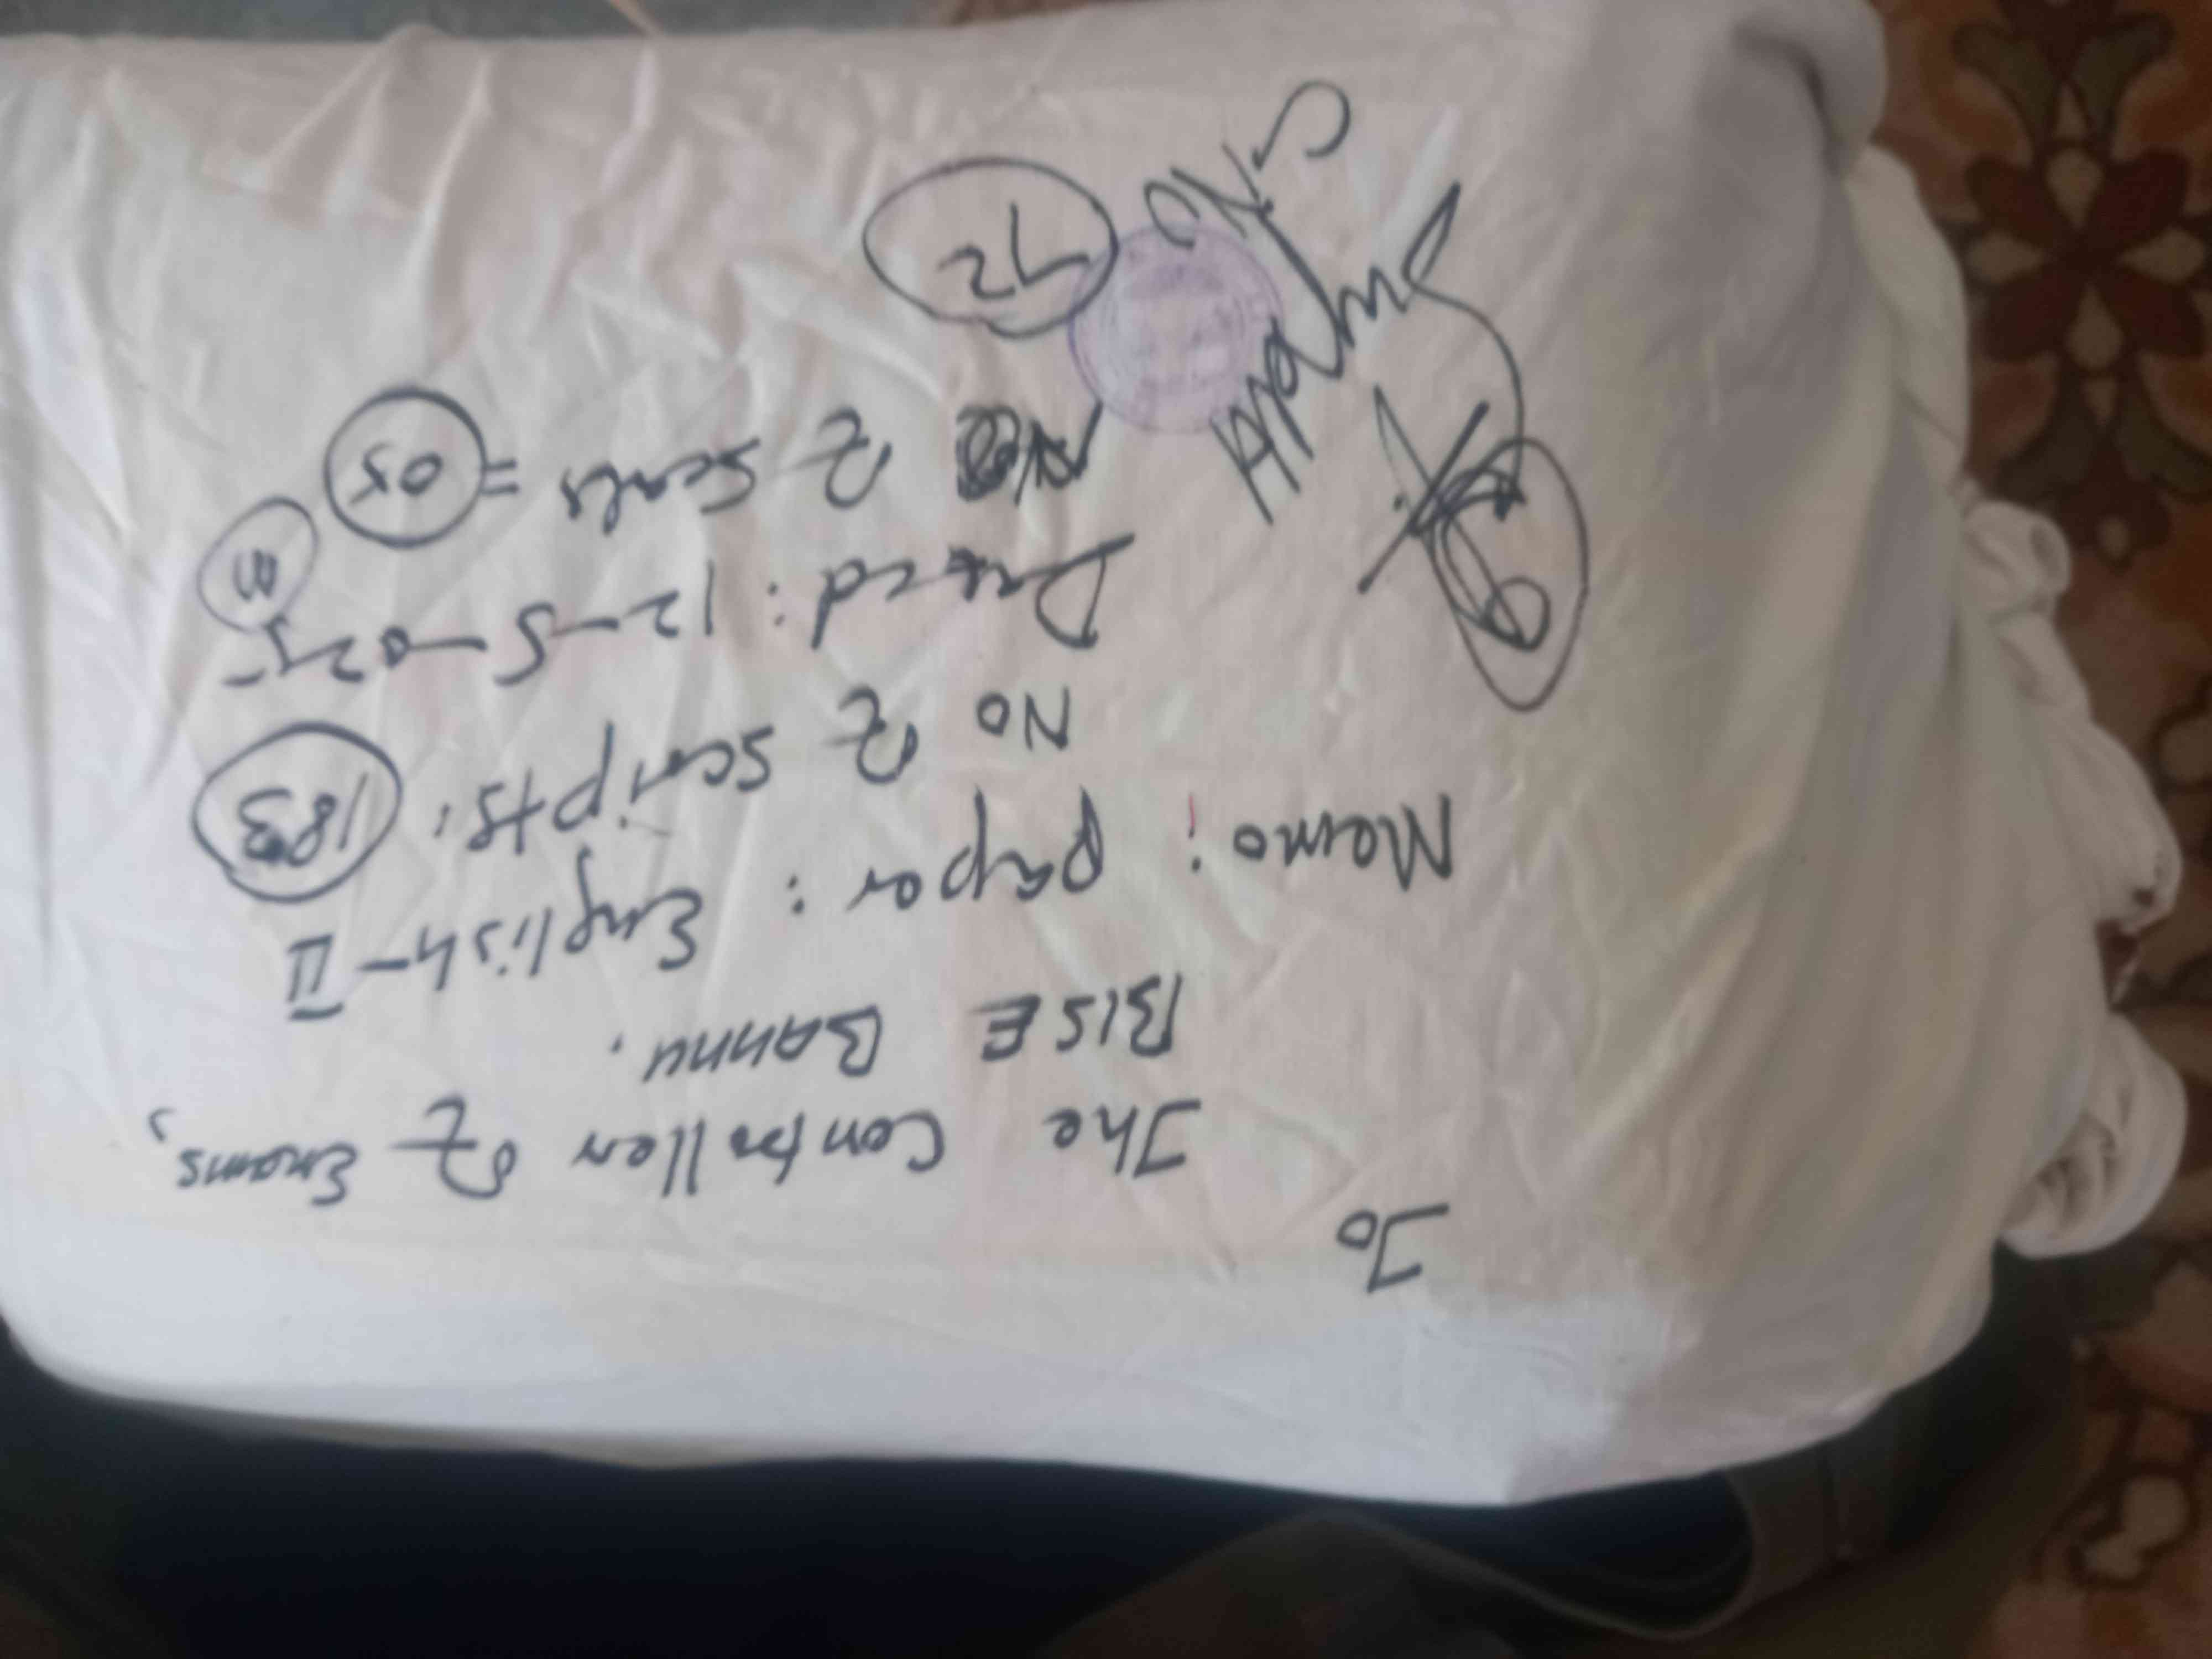 To
The Controller of Exams,
BISE BANNU.
Memo: paper: English-II
No of scripts: 183
Dated: 12-5-025 m
of seals = 05
72